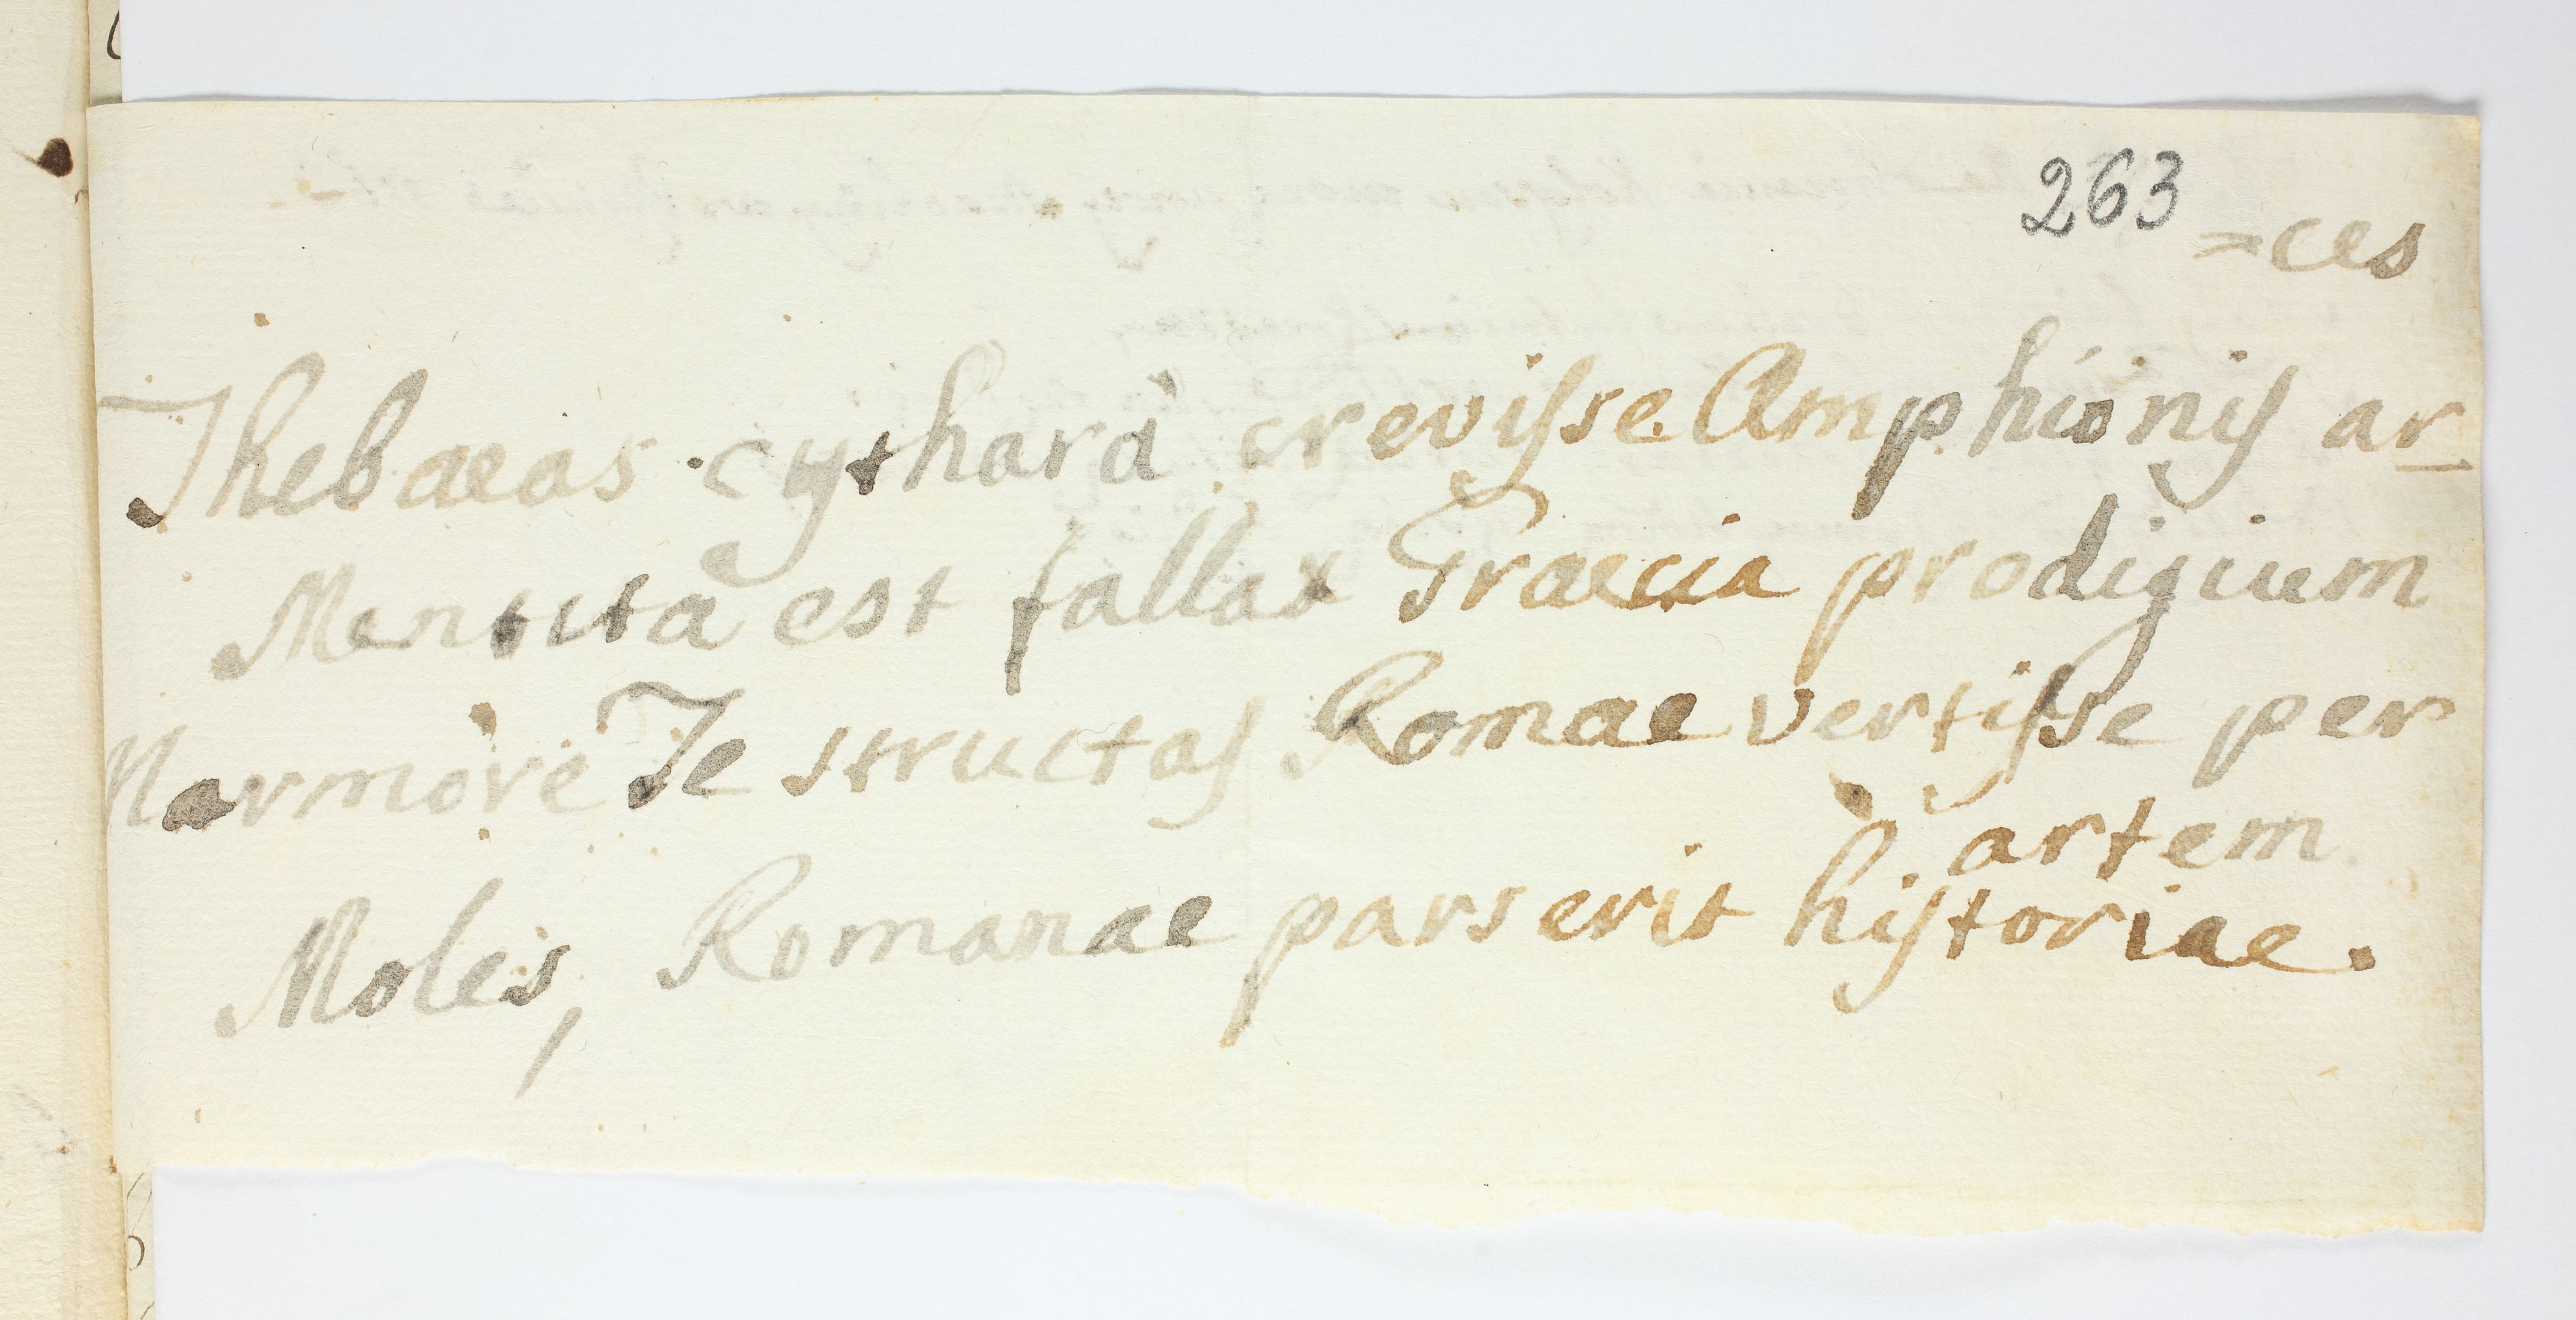 263
=ces
Thebaeas cytharà crevisse Amphionis ar
Mentita est fallax Graecia prodigium
Marmore Te structas Romae vertisse per
artem
Moles, Romanae pars erit historiae.